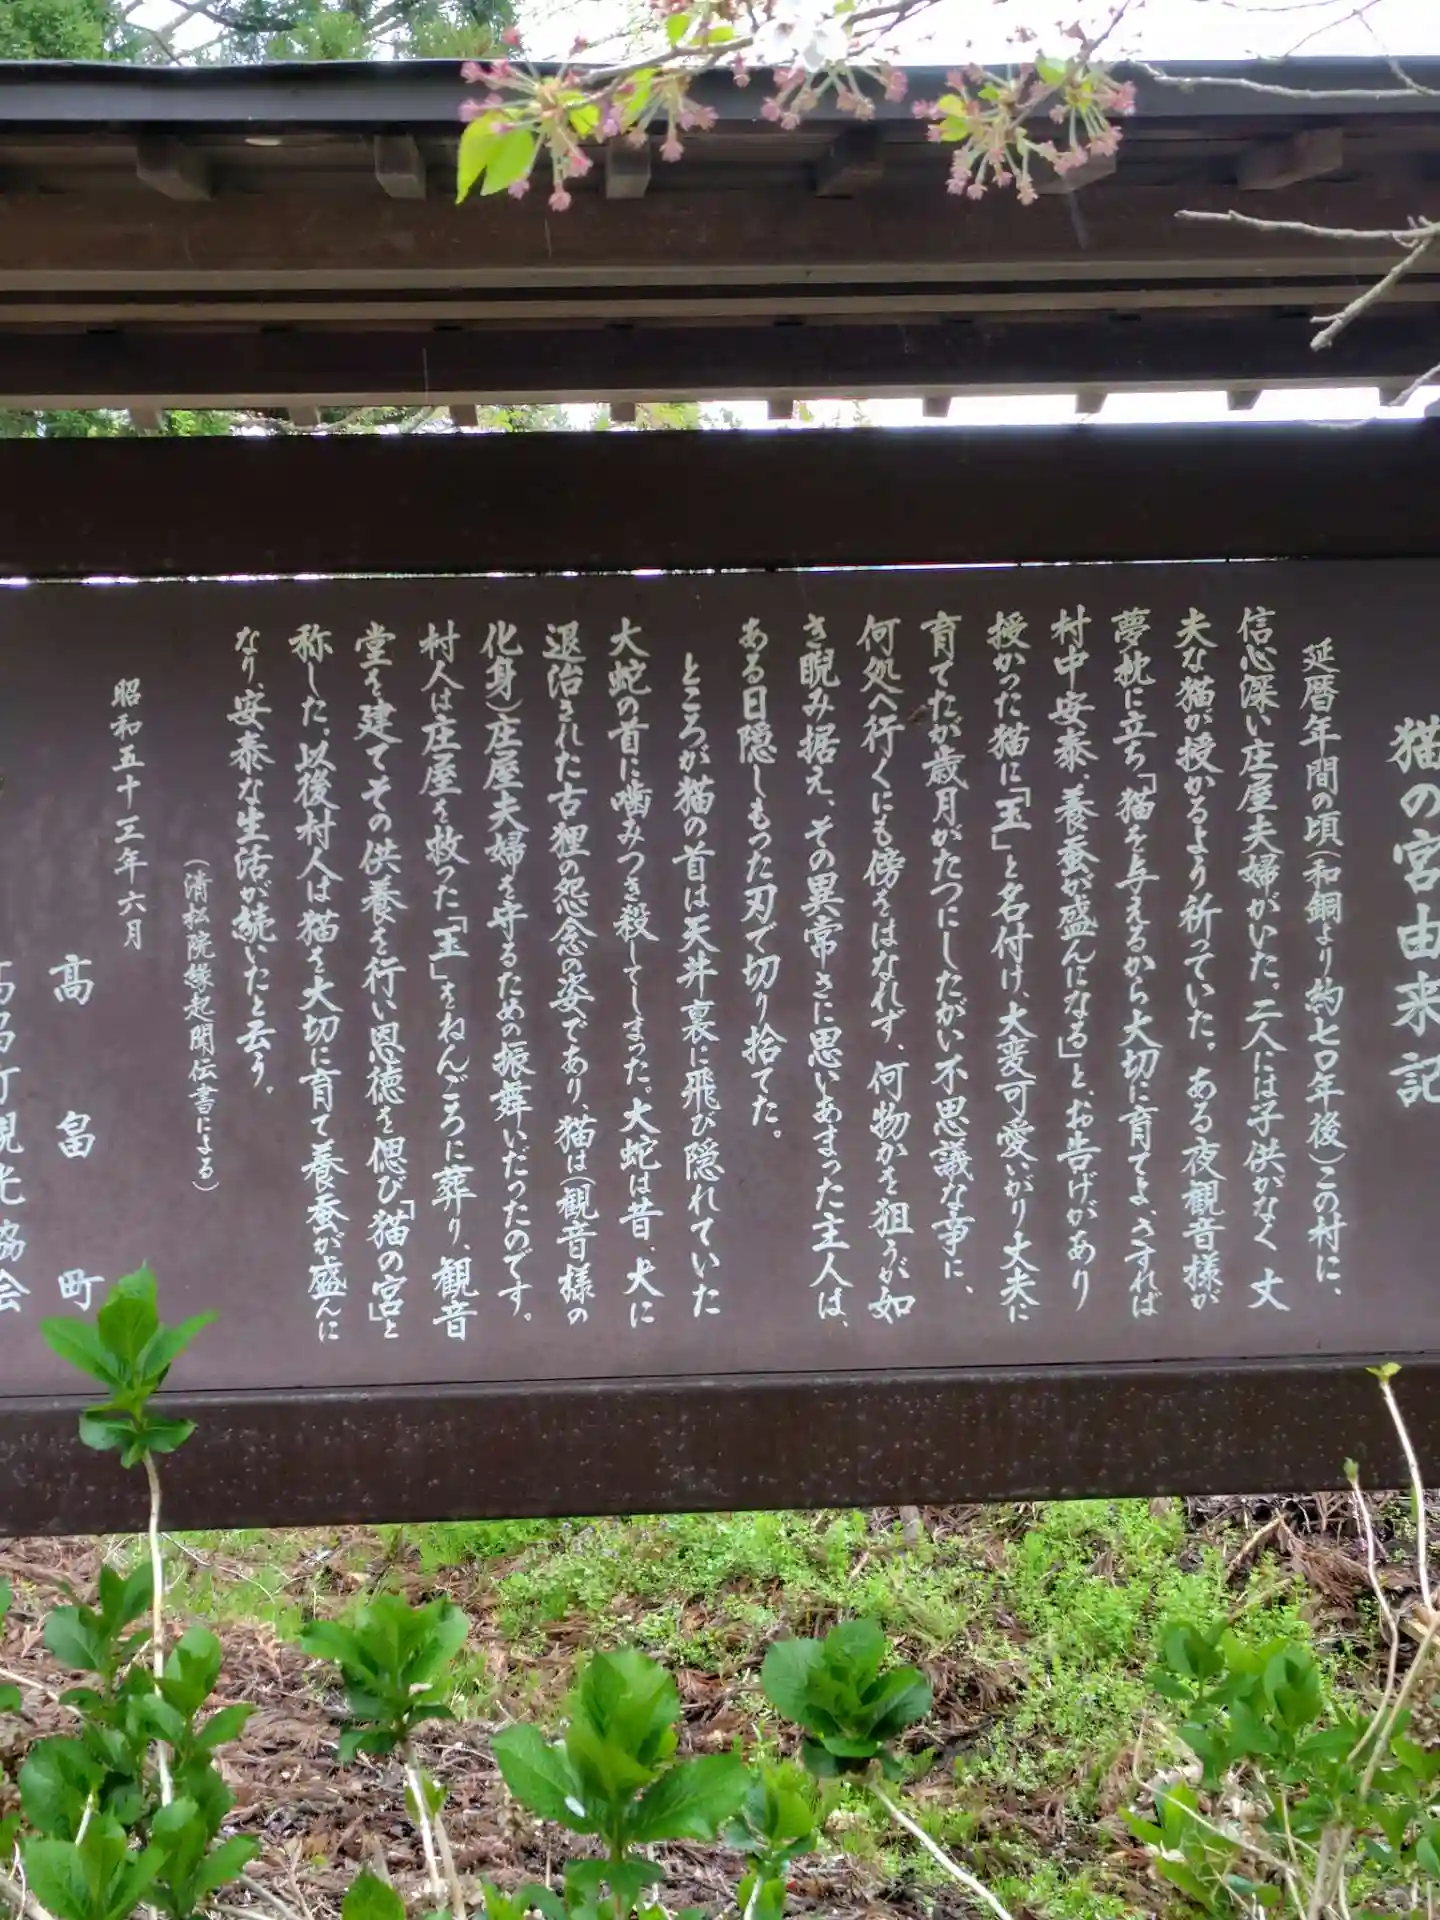 猫の宮由来記
延暦年間の頃(和銅より約七〇年後)この村に、
信心深い庄屋夫婦がいた。二人には子供がなく丈
夫な猫が授かるよう祈っていた。ある夜観音様が
夢枕に立ち「猫を与えるから大切に育てよ、さすれば
村中安泰、養蚕が盛んになる」と、お告げがあり
授かった猫に「玉」と名付け、大変可愛いがり丈夫に
育てたが歳月がたつにしたがい不思議な事に、
何処へ行くにも傍をはなれず、何物かを狙うが如
き睨み据え、その異常さに思いあまった主人は、
ある日隠しもった刃で切り捨てた。
ところが猫の首は天井裏に飛び隠れていた
大蛇の首に噛みつき殺してしまった。大蛇は昔、犬に
退治された古狸の怨念の姿であり、猫は(観音様の
化身)庄屋夫婦を守るための振舞いだったのです。
村人は庄屋を救った「玉」をねんごろに葬り、観音
堂を建てその供養を行い恩徳を偲び「猫の宮」と
称した。以後村人は猫を大切に育て養蚕が盛んに
なり安泰な生活が続いたと云う。
(清松院縁起聞伝書による)
昭和五十三年六月
高畠町
高畠町観光協会